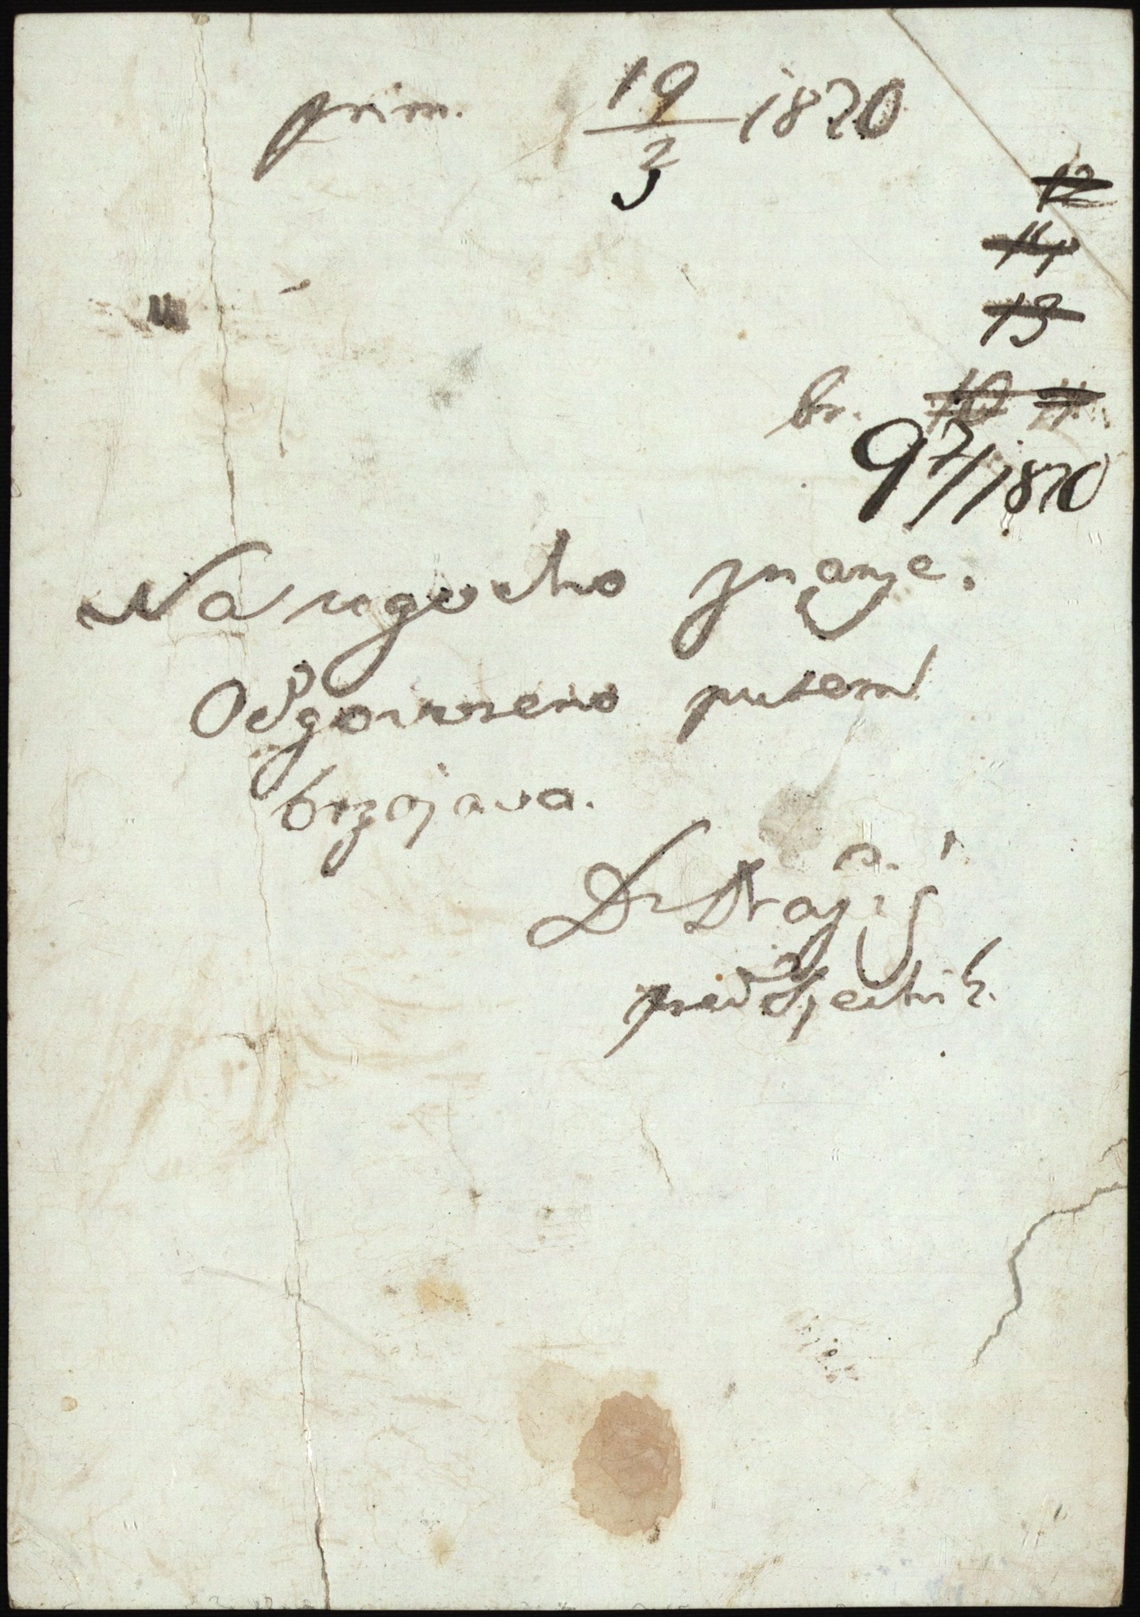 prim. 19/3 1870
12
14
13
br. 10 11
97/1870
Na ugodno znanje.
Odgovoreno putem
brzojava.
Dr Dražić
predsjednik.